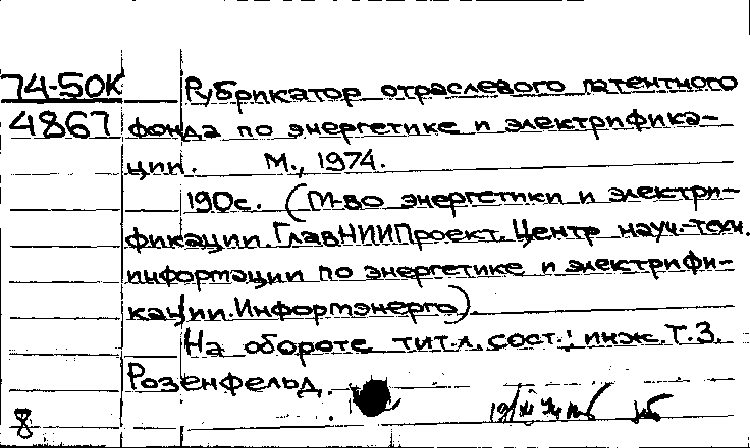 74-50к Рубрикатор отраслевого патентного
4867 фонда по энергетике и электрифика-
ции. М., 1974.
190с. (М-во энергетики и электри-
фикации. ГлавНИИПроект. Центр науч.-техн.
информации по энергетике и электрифи-
кации. Информэнерго).
На обороте тит. л. сост.: инж. Т.З.
Розенфельд.
8